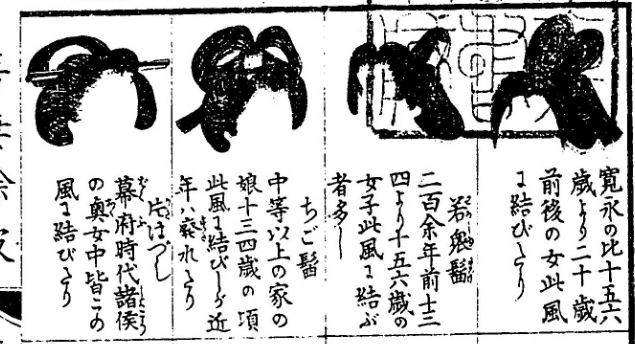 寛永の比十五六
歳より二十歳
前後の女此風
に結びたり
若鬼髷
二百余年前十三
四より十五六歳の
女子此風に結ぶ
者多し
ちご髷
中等以上の家の
娘十三四歳の頃
此風に結びしが近
年ハ廃れたり
片はづし
幕府時代諸侯
の奥女中皆この
風に結びたり